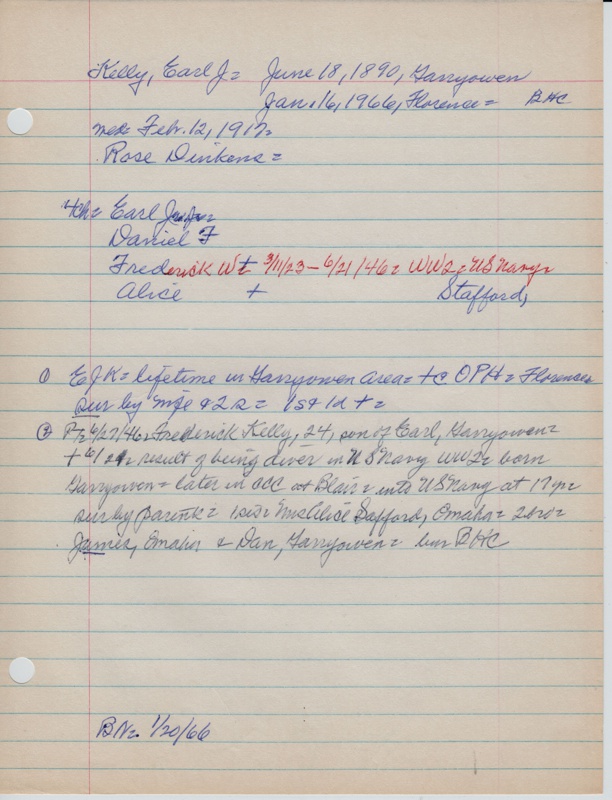 Kelly, Earl J= June 18, 1890, Garryowen
Jan. 16, 1966, Florence= BHC
med= Feb. 12, 1917=
Rose Dinkens=
4ch= Earl
Daniel F
Frederick W= + 3/11/23 - 6/21/46= WW2= US Navy=
Alice + Stafford,
① EJK= lifetime in Garryowen area= +@ OPH= Florence=
sur by wife & 2 s= 1s+ 1d +=
② 6/27/46= Frederick Kelly, 24, son of Earl, Garryowen=
+ 6/21= result of being diver in US Navy WW2= born
Garryowen= later in CCC at Blair= into US Navy at 17 yr=
sur by parents= 1 sis= Mrs Alice Safford, Omaha= 2 bro=
James, Omaha & Dan, Garryowen= bur BHC
BN= 1/20/66